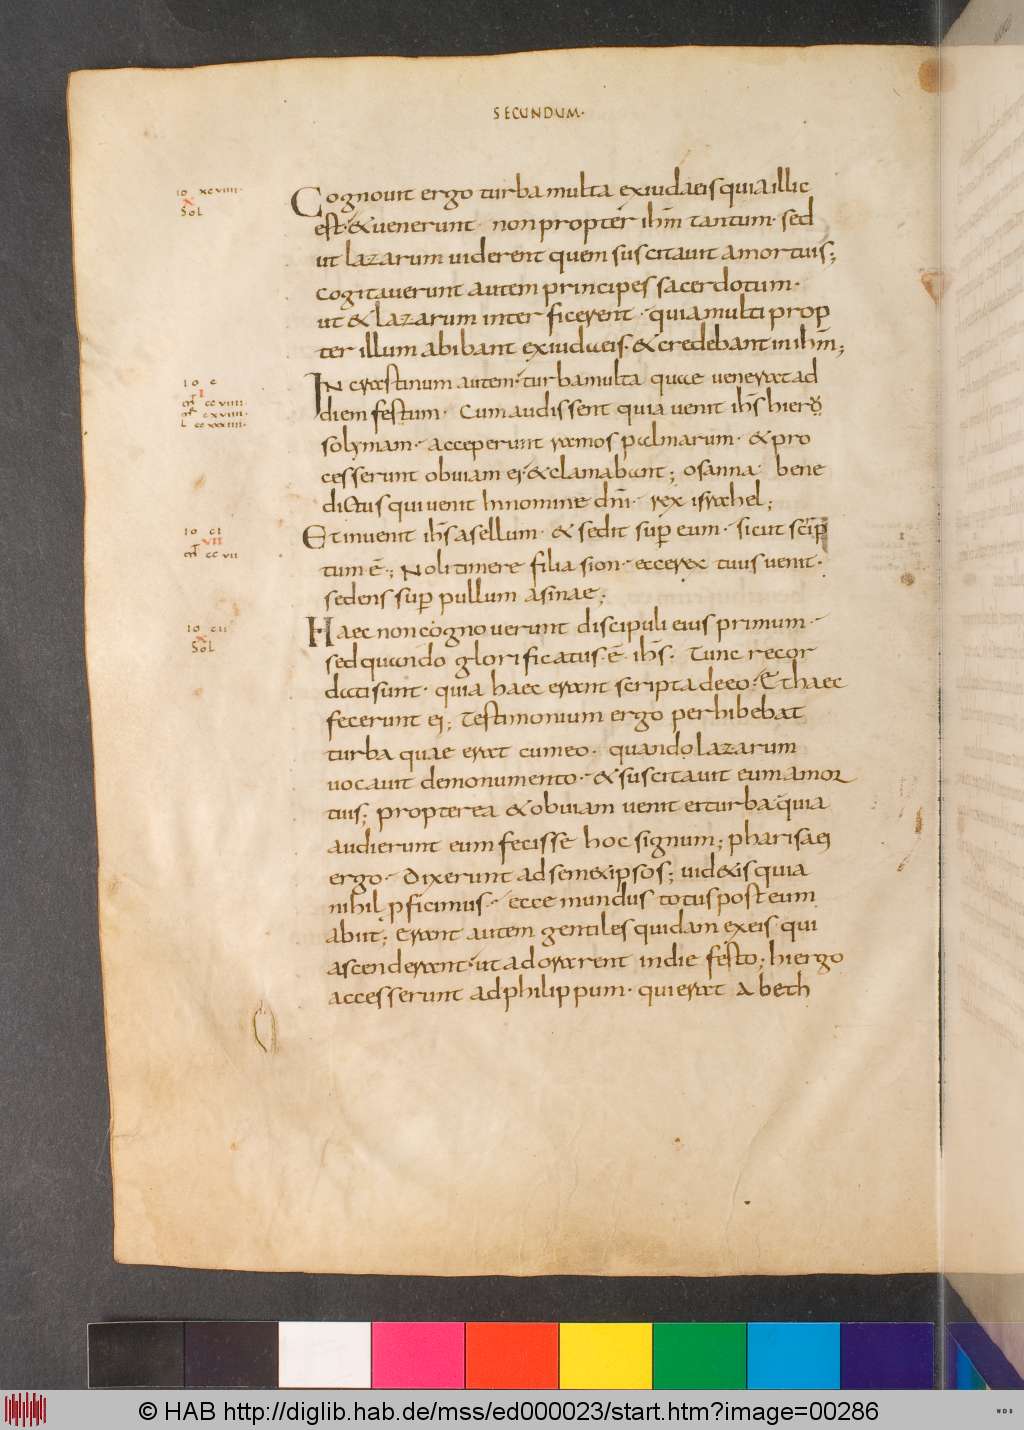 SECUNDUM·
IO XCVIIII·
X
SOL
Cognouit ergo turba multa exiudaeis quia illic
est· & uenerunt· non propter ihm̅ tantum· sed
ut lazarum uiderent quem suscitauit amortuis;
cogitauerunt autem principes sacerdotum·
ut & lazarum interficerent· quia multi prop
ter illum abibant exiudaeis· & credebant in ihm̅;
IO C
I
CCVIIII
CXVIIII·
L CCXXXIIII·
In crastinum autem· turba multa quae uenerat ad
diem festum· Cum audissent quia uenit ihs̅ hiero
solymam· acceperunt ramos palmarum· & pro
cesserunt obuiam ei· & clamabant; osanna· bene
dictus qui uenit In nomine dn̅i· rex israhel;
IO CI
VII
CCVII
Et inuenit ihs̅ asellum· & sedit sup̅ eum· sicut scrip
tum e̅·; Noli timere filia sion· ecce rex tuus uenit·
sedens sup̅ pullum asinae;
IO CII
X
SOL
Haec non cognouerunt discipuli eius primum·
sed quando glorificatus e̅· ihs̅· Tunc recor
dati sunt· quia haec erant scripta deeo· Et haec
fecerunt ei; Testimonium ergo perhibebat
turba quae erat cumeo· quando lazarum
uocauit demonumento· & suscitauit eum amor
tuis; propterea & obuiam uenit ei turba quia
audierunt eum fecisse hoc signum; pharisaei
ergo· Dixerunt ad sem&ipsos; uid&is quia
nihil p̲ficimus· ecce mundus totus post eum
abiit; Erant autem gentiles quidam exeis qui
ascenderant· ut adorarent indie festo; hi ergo
accesserunt ad philippum· qui erat A beth
© HAB http://diglib.hab.de/mss/ed000023/start.htm?image=00286